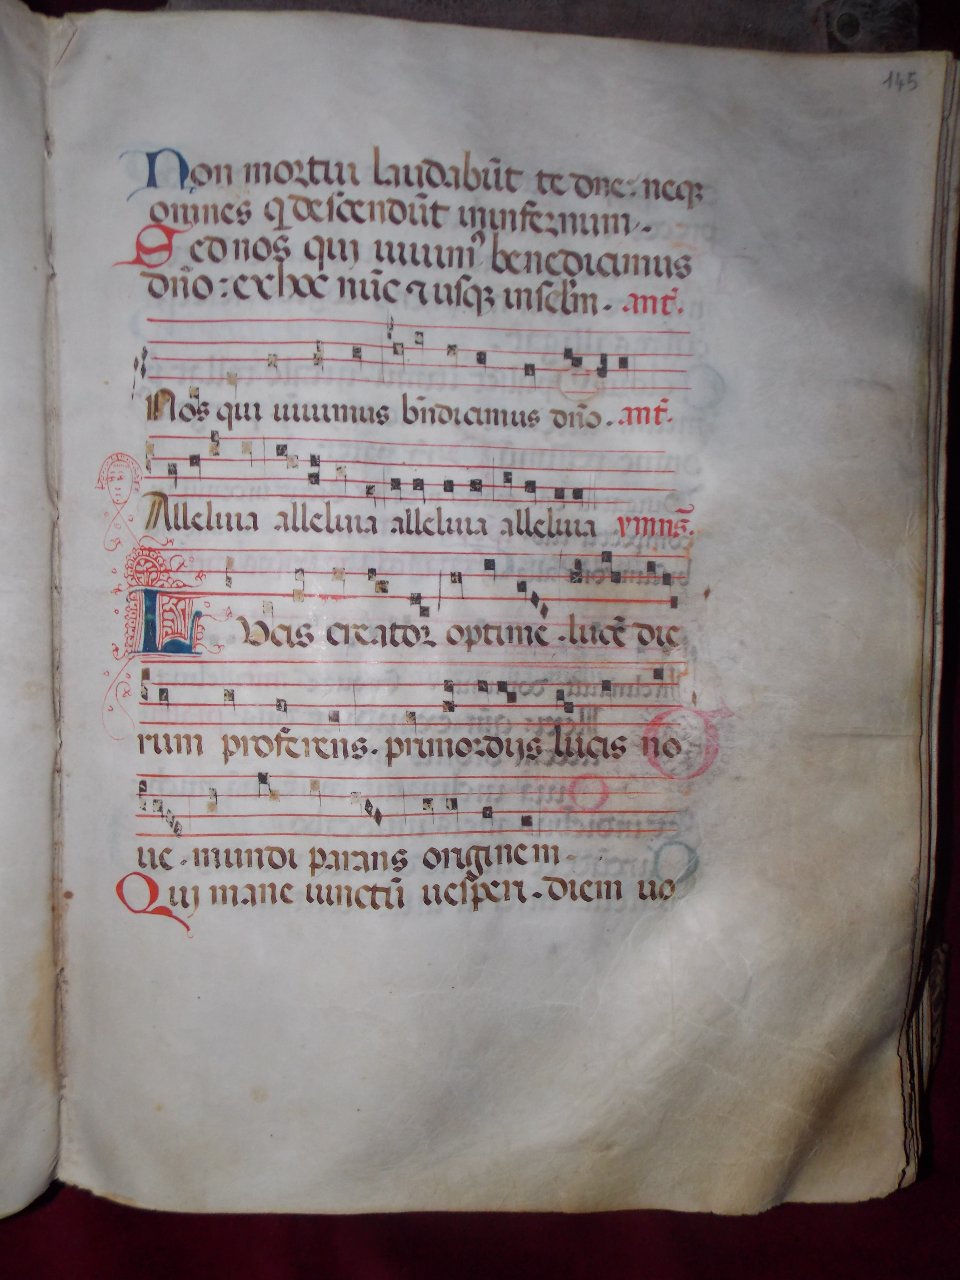 145
Non mortui laudabūt te dne: neqꝫ
omnes q̇ descendūt in infernum.
Sed nos qui uiuimꝰ benedicimus
dn̄o: ex hoc nūc ⁊ usqꝫ in sclm. ant̄.
Nos qui uiuimus bn̄dicimus dn̄o. ant̄.
Alleluia alleluia alleluia alleluia ymns̄.
Lucis creator optime. lucē die
rum proferens. primordijs lucis no
ue. mundi parans originem.
Qui mane iunctū uesperi. diem uo